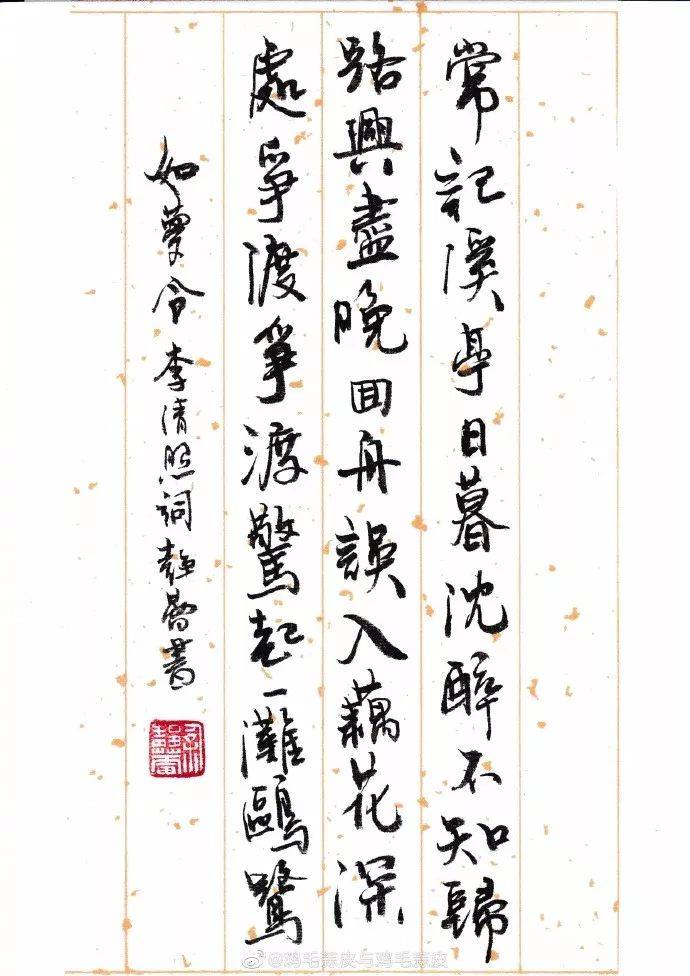 常記溪亭日暮沈醉不知歸
路興盡晚回舟誤入藕花深
處爭渡爭渡驚起一灘鷗鷺
如夢令李清照詞靜書
@鸡毛蒜皮与鸡毛蒜皮